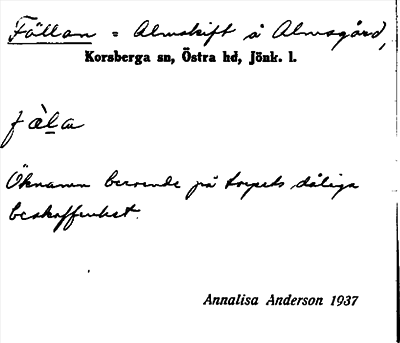 Fällan = Almskift å Almsgård,
Korsberga sn, Östra hd, Jönk. l.
fä̀la
Öknamn beroende på torpets dåliga
beskaffenhet.
Annalisa Anderson 1937